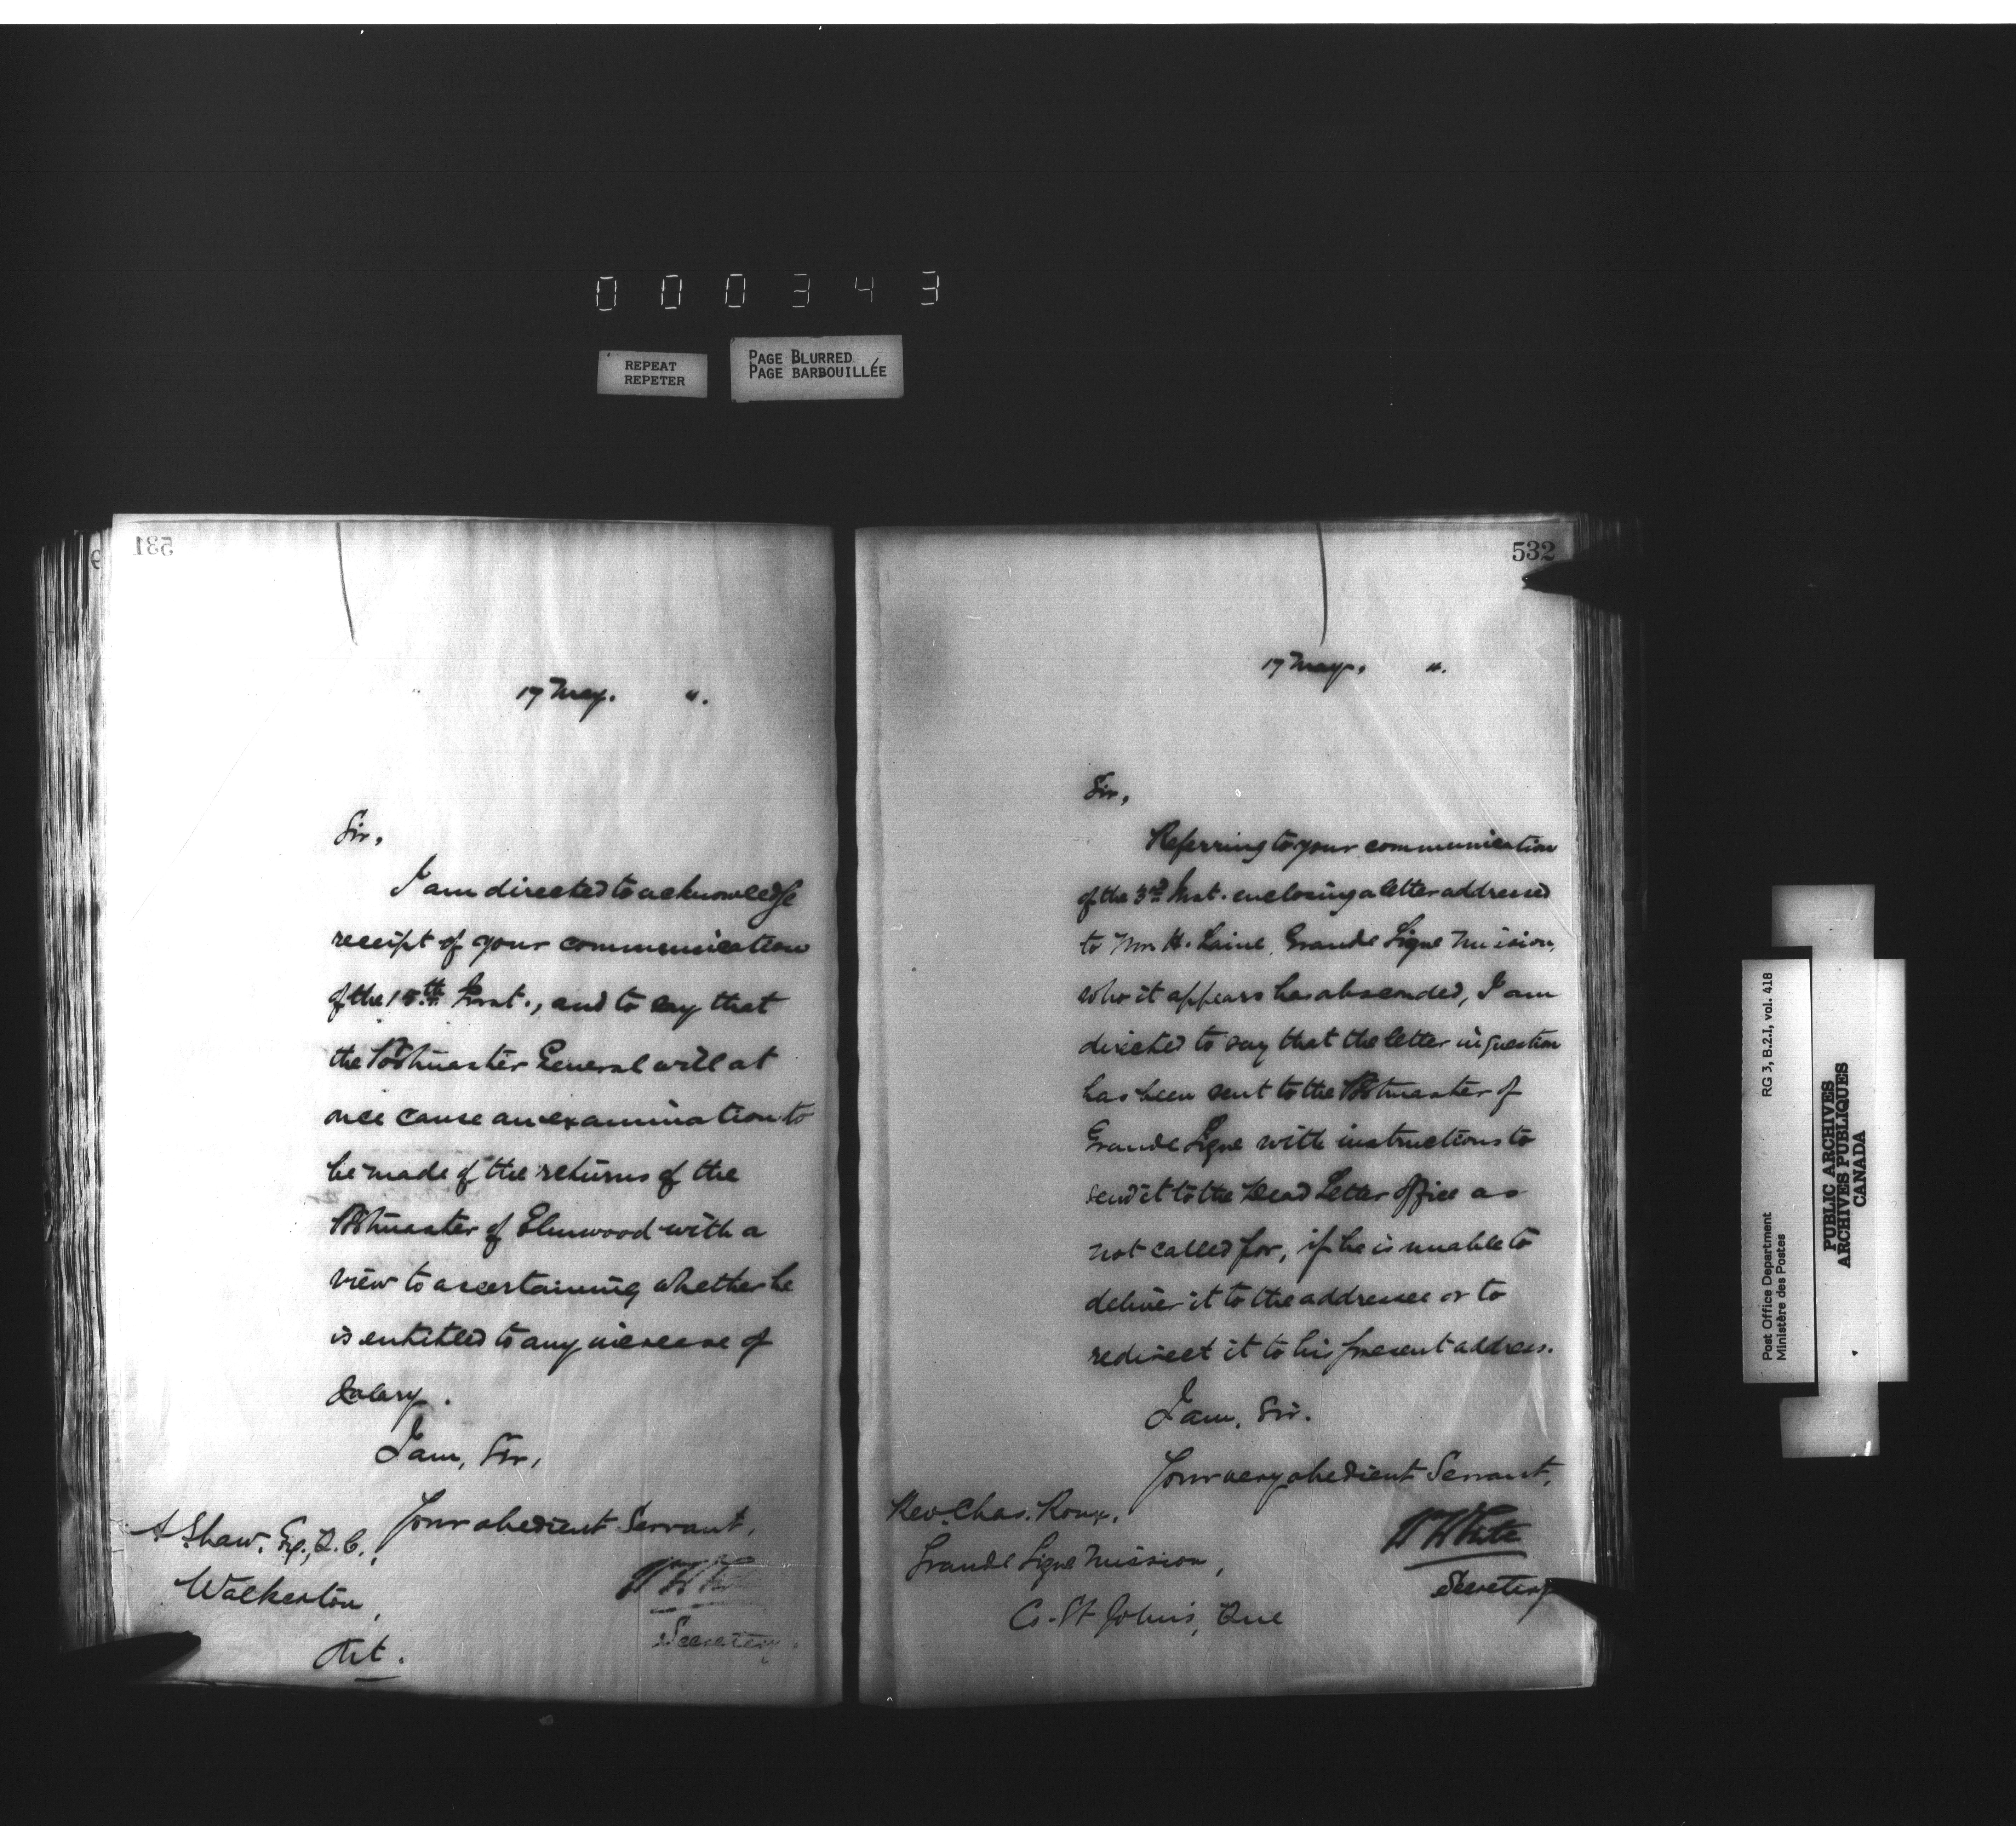 000343
REPEAT
REPETER
PAGE BLURRED
PAGE BARBOUILLÉE
531
17 May. ".
Sir,
I am directed to acknowledge
receipt of your communication
of the 15th Inst., and to say that
the Postmaster General will at
once cause an examination to
be made of the returns of the
Postmaster of Elmwood with a
view to ascertaining whether he
is entitled to any increase of
Salary.
I am, Sir,
Your obedient Servant,
W White
Secretary.
A Shaw. Esq., Q.C.,
Walkerton,
Ont.
532
17 May, ".
Sir,
Referring to your communication
of the 3rd Inst. enclosing a letter addressed
to Mr. H. Laine, Grande Ligne Mission,
who it appears has absconded, I am
directed to say that the letter in question
has been sent to the Postmaster of
Grande Ligne with instructions to
send it to the Dead Letter Office as
not called for, if he is unable to
deliver it to the addressee or to
redirect it to his present address.
I am, Sir.
Your very obedient Servant,
W White
Secretary
Rev. Chas. Roux,
Grande Ligne Mission,
Co. St John's, Que
Post Office Department
Ministère des Postes
RG 3, B.2.I, vol. 418
PUBLIC ARCHIVES
ARCHIVES PUBLIQUES
CANADA